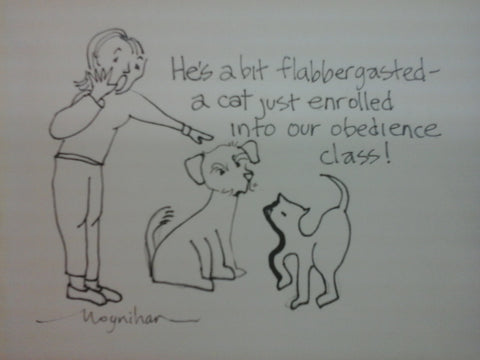 He's a bit flabbergasted-
a cat just enrolled
into our obedience
class!
Moynihan